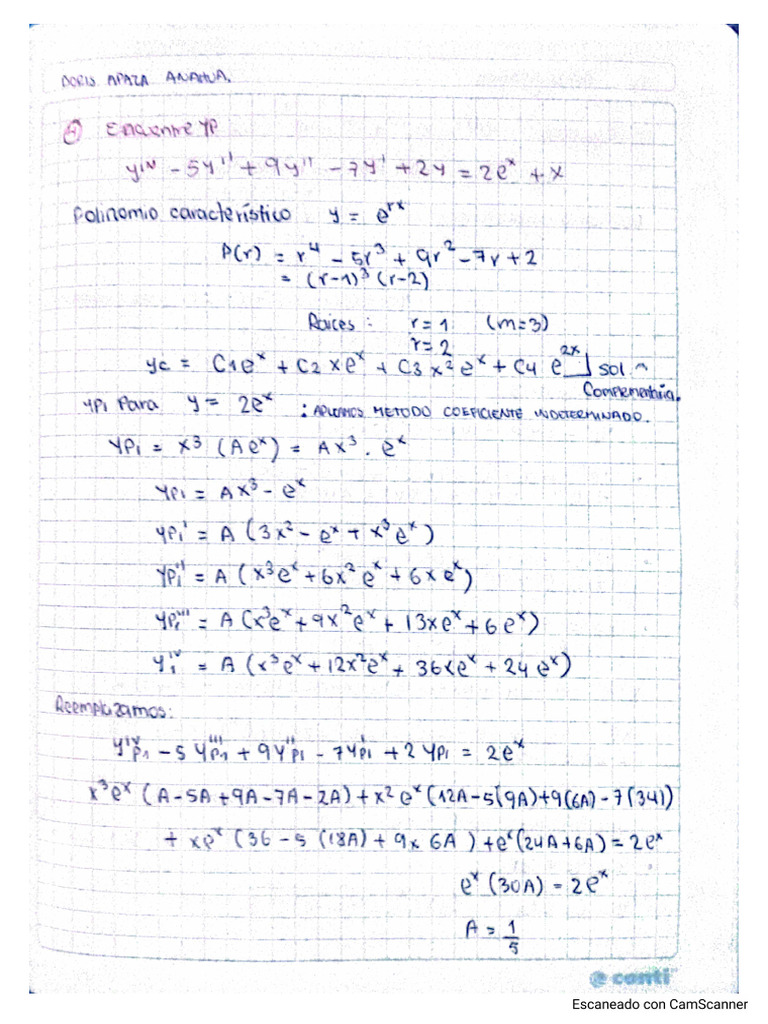 DORIS APAZA ANAHUA.
Encuentre YP
y'^{IV} - 5y''' + 9y'' - 7y' + 2y = 2e^x + x
Polinomio característico y = e^{rx}
P(r) = r^4 - 5r^3 + 9r^2 - 7r + 2
= (r-1)^3 (r-2)
Raices: r = 1 (m=3)
r = 2
yc = C1e^x + C2 xe^x + C3 x^2 e^x + C4 e^{2x} ] sol ~
Complementaria.
yp1 Para y = 2e^x : APLICAMOS METODO COEFICIENTE INDETERMINADO.
YP1 = x^3 (Ae^x) = Ax^3 . e^x
YP1 = Ax^3 - e^x
YP1' = A (3x^2 - e^x + x^3 e^x)
YP1'' = A (x^3e^x + 6x^2 e^x + 6x e^x)
YP1''' = A (x^3e^x + 9x^2e^x + 13xe^x + 6e^x)
Y1^{IV} = A (x^3e^x + 12x^2e^x + 36xe^x + 24e^x)
Reemplazamos:
Y^{IV}p1 - 5Y'''p1 + 9Y''p1 - 7Y'p1 + 2Yp1 = 2e^x
x^3e^x (A-5A+9A-7A-2A) + x^2 e^x (12A-5(9A)+9(6A)-7(3A))
+ xe^x (36-5(18A)+9x6A) + e^x(24A+6A) = 2e^x
e^x (30A) = 2e^x
A = 1/5
conti
Escaneado con CamScanner